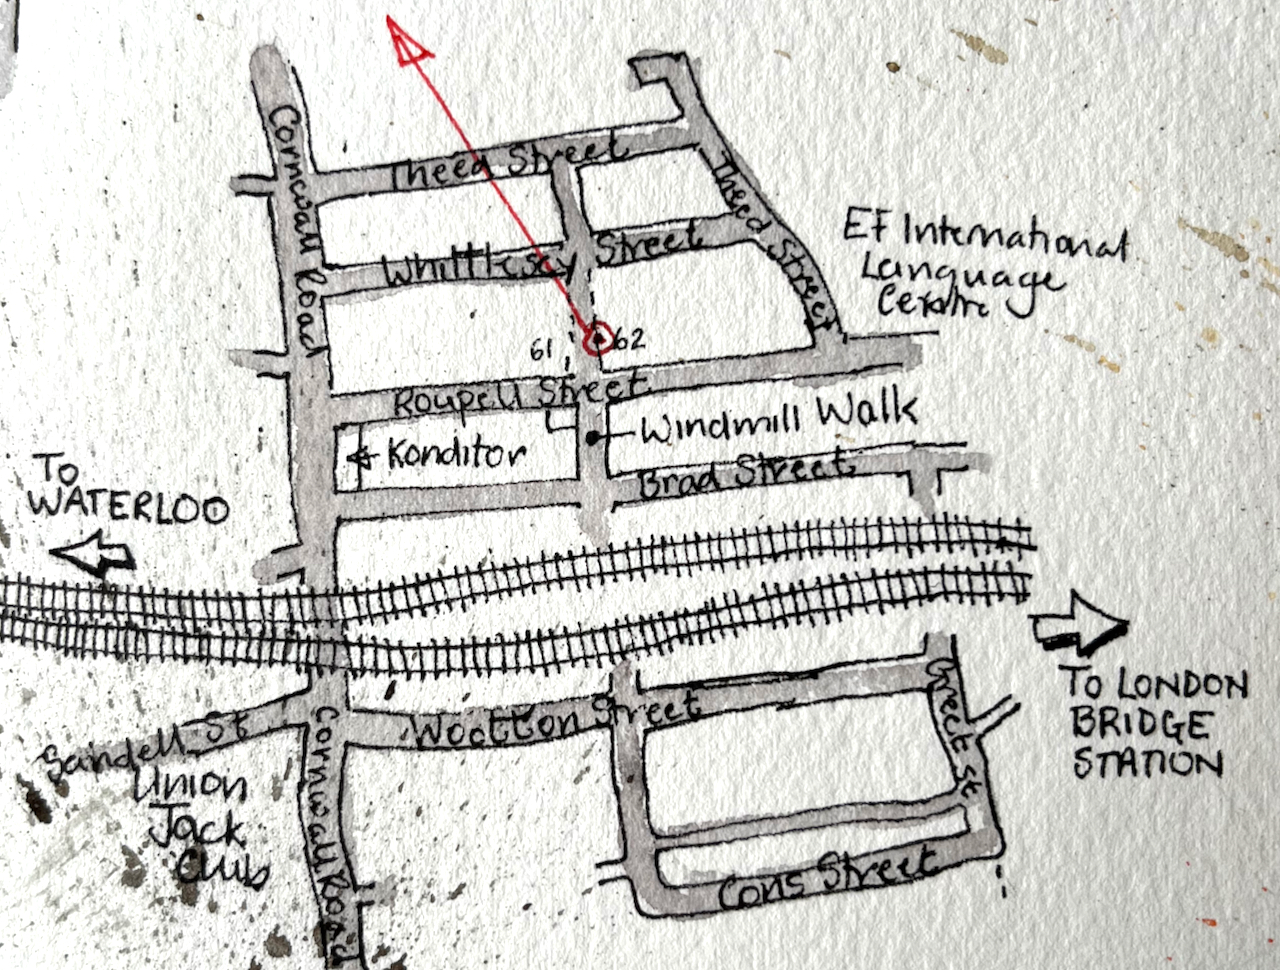 Cornwall Road
Theed Street
Theed Street
Whittlesey Street
EF International
Language
Centre
61
62
Roupell Street
Windmill Walk
Konditor
Brad Street
TO
WATERLOO
TO LONDON
BRIDGE
STATION
Greet St
Wootton Street
Sandell St
Union
Jack
Club
Cornwall Road
Cons Street